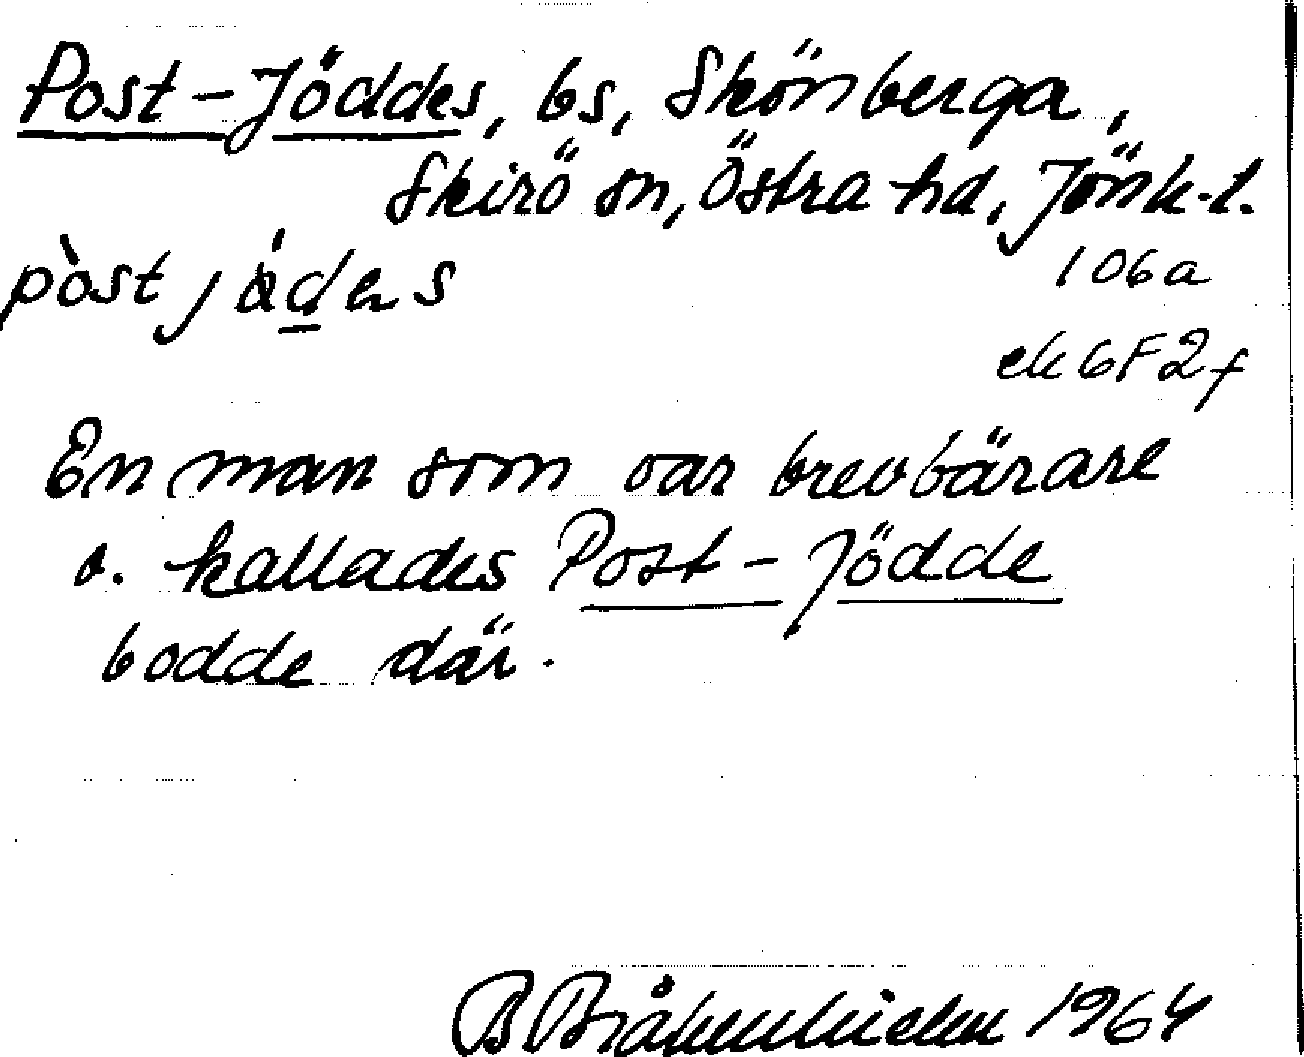 Post-Jöddes, bs, Skönberga,
Skirö sn, Östra hd, Jönk. l.
pòstjádes
106a
ek 6F2f
En man som var brevbärare
o. kallades Post-Jödde
bodde där.
B Bråkenhielm 1964